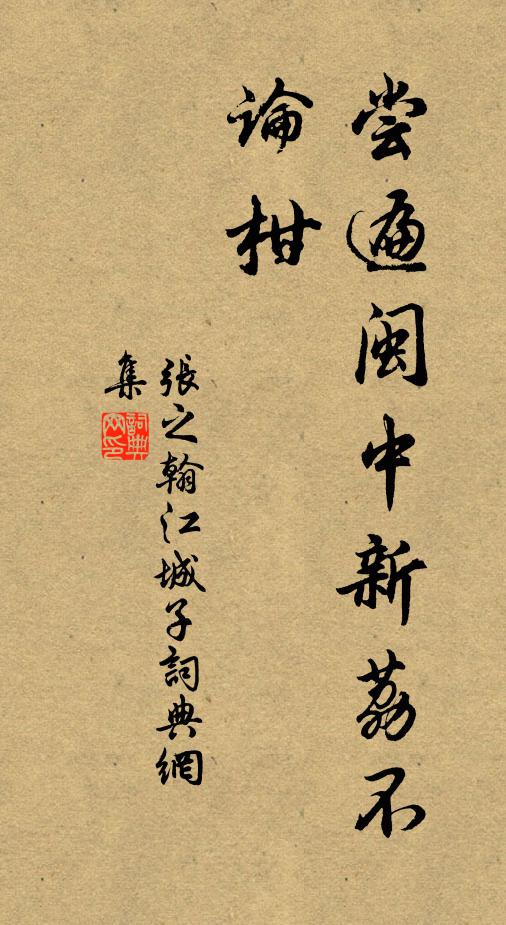 尝遍闽中新荔不
論柑
張之翰江城子詞典網
集
詞典網印